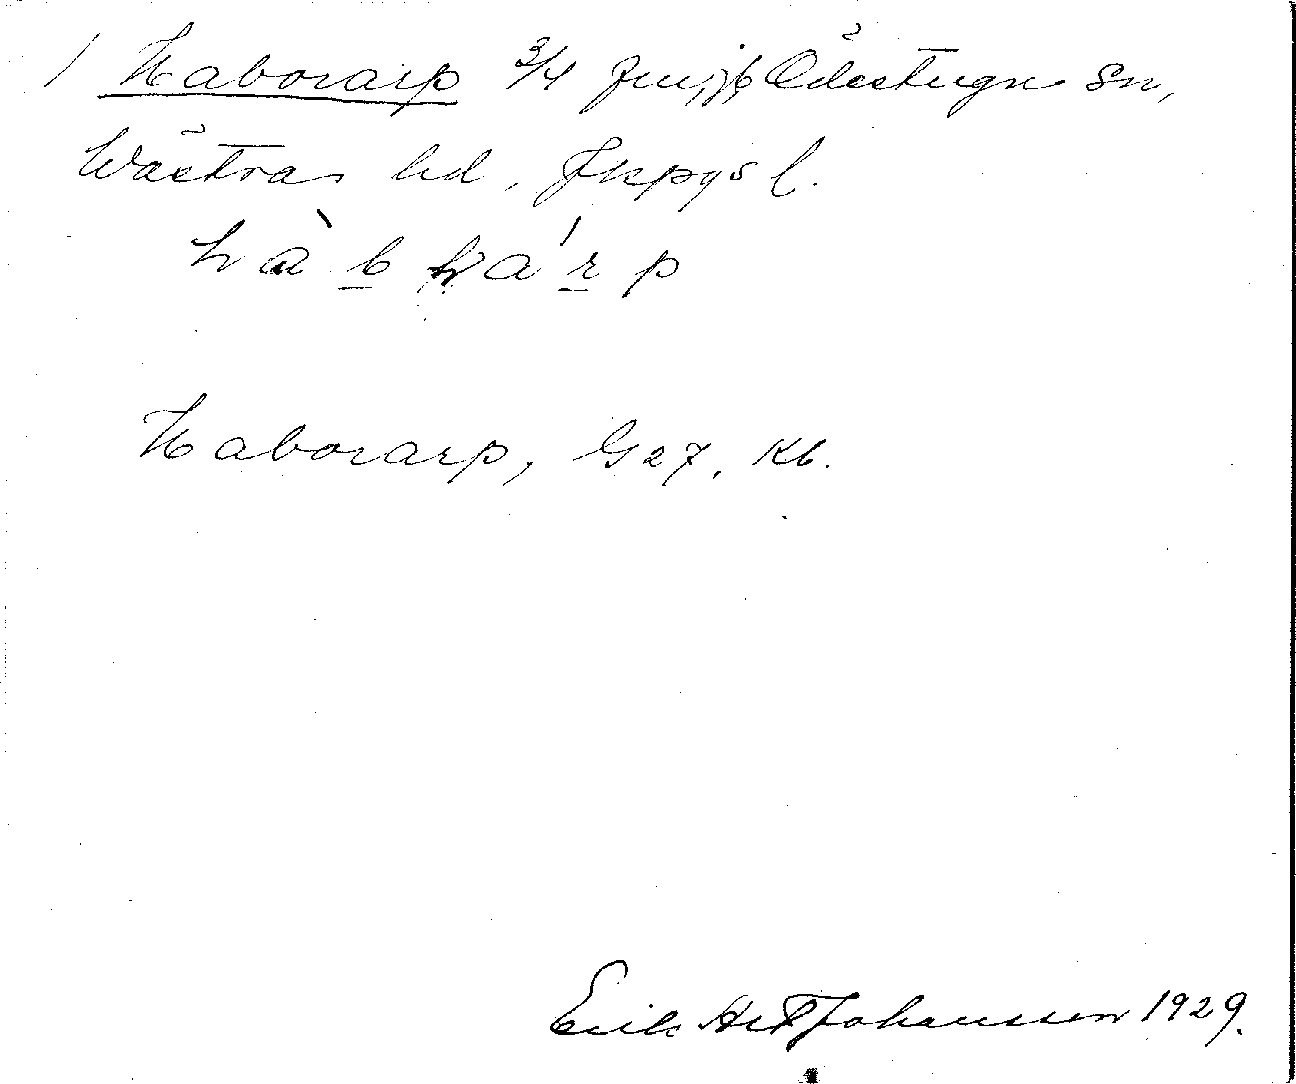 / Haborarp 3/4 Ödestugu sn,
Wästra hd, Jkpgs l.
Haborarp, G27, Kb.
Erik Johansson 1929.